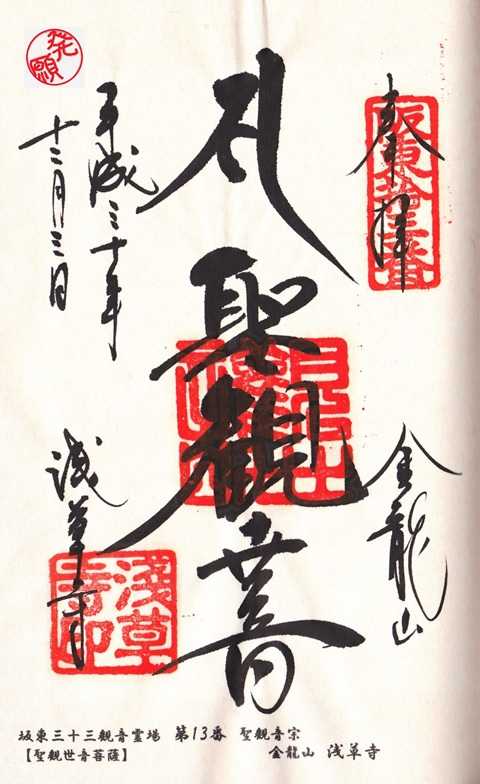 奉拝
坂東第十三番
金龍山
聖観世音
平成三十年
十二月三日
浅草寺
淺草寺印
坂東三十三観音霊場 第13番 聖観音宗
【聖観世音菩薩】 金龍山 浅草寺